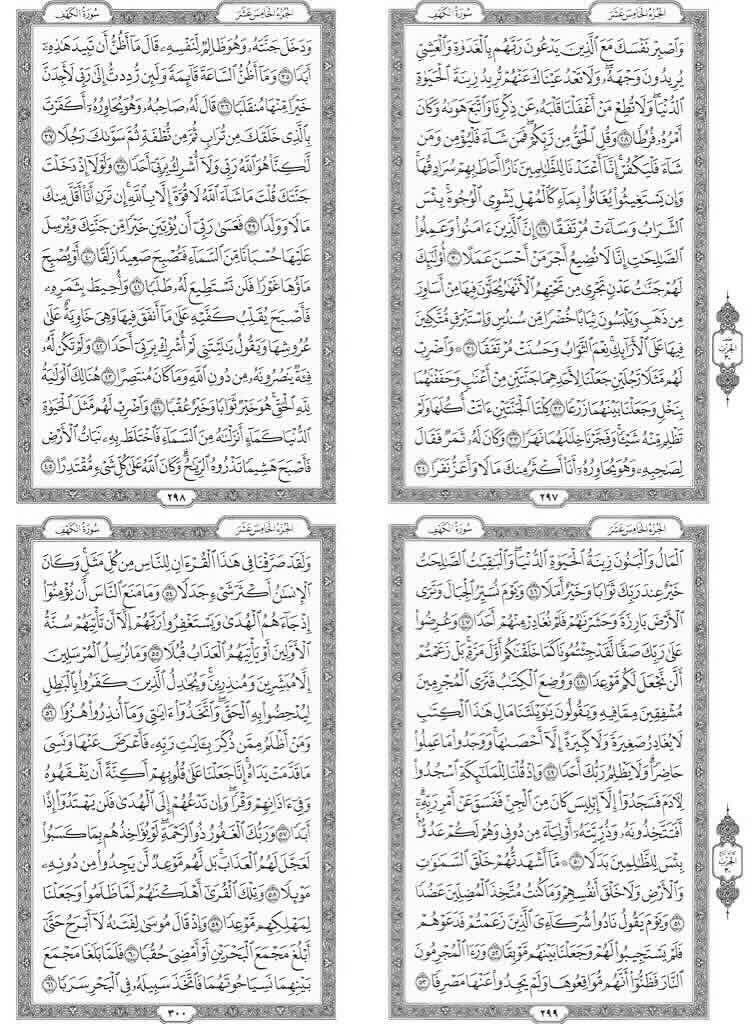 الجزء الخامس عشر
سورة الكهف
وَٱصْبِرْ نَفْسَكَ مَعَ ٱلَّذِينَ يَدْعُونَ رَبَّهُم بِٱلْغَدَوٰةِ وَٱلْعَشِيِّ
يُرِيدُونَ وَجْهَهُۥ ۖ وَلَا تَعْدُ عَيْنَاكَ عَنْهُمْ تُرِيدُ زِينَةَ ٱلْحَيَوٰةِ
ٱلدُّنْيَا ۖ وَلَا تُطِعْ مَنْ أَغْفَلْنَا قَلْبَهُۥ عَن ذِكْرِنَا وَٱتَّبَعَ هَوَىٰهُ وَكَانَ
أَمْرُهُۥ فُرُطًا ٢٨ وَقُلِ ٱلْحَقُّ مِن رَّبِّكُمْ ۖ فَمَن شَآءَ فَلْيُؤْمِن وَمَن
شَآءَ فَلْيَكْفُرْ ۚ إِنَّآ أَعْتَدْنَا لِلظَّٰلِمِينَ نَارًا أَحَاطَ بِهِمْ سُرَادِقُهَا ۚ
وَإِن يَسْتَغِيثُوا۟ يُغَاثُوا۟ بِمَآءٍ كَٱلْمُهْلِ يَشْوِى ٱلْوُجُوهَ ۚ بِئْسَ
ٱلشَّرَابُ وَسَآءَتْ مُرْتَفَقًا ٢٩ إِنَّ ٱلَّذِينَ ءَامَنُوا۟ وَعَمِلُوا۟
ٱلصَّٰلِحَٰتِ إِنَّا لَا نُضِيعُ أَجْرَ مَنْ أَحْسَنَ عَمَلًا ٣٠ أُو۟لَٰٓئِكَ
لَهُمْ جَنَّٰتُ عَدْنٍ تَجْرِى مِن تَحْتِهِمُ ٱلْأَنْهَٰرُ يُحَلَّوْنَ فِيهَا مِنْ أَسَاوِرَ
مِن ذَهَبٍ وَيَلْبَسُونَ ثِيَابًا خُضْرًا مِّن سُندُسٍ وَإِسْتَبْرَقٍ مُّتَّكِـِٔينَ
فِيهَا عَلَى ٱلْأَرَآئِكِ ۚ نِعْمَ ٱلثَّوَابُ وَحَسُنَتْ مُرْتَفَقًا ٣١ ۞ وَٱضْرِبْ
لَهُم مَّثَلًا رَّجُلَيْنِ جَعَلْنَا لِأَحَدِهِمَا جَنَّتَيْنِ مِنْ أَعْنَٰبٍ وَحَفَفْنَٰهُمَا
بِنَخْلٍ وَجَعَلْنَا بَيْنَهُمَا زَرْعًا ٣٢ كِلْتَا ٱلْجَنَّتَيْنِ ءَاتَتْ أُكُلَهَا وَلَمْ
تَظْلِم مِّنْهُ شَيْـًٔا ۚ وَفَجَّرْنَا خِلَٰلَهُمَا نَهَرًا ٣٣ وَكَانَ لَهُۥ ثَمَرٌ فَقَالَ
لِصَٰحِبِهِۦ وَهُوَ يُحَاوِرُهُۥٓ أَنَا۠ أَكْثَرُ مِنكَ مَالًا وَأَعَزُّ نَفَرًا ٣٤
٢٩٧
الجزء الخامس عشر
سورة الكهف
وَدَخَلَ جَنَّتَهُۥ وَهُوَ ظَالِمٌ لِّنَفْسِهِۦ قَالَ مَآ أَظُنُّ أَن تَبِيدَ هَٰذِهِۦٓ
أَبَدًا ٣٥ وَمَآ أَظُنُّ ٱلسَّاعَةَ قَآئِمَةً وَلَئِن رُّدِدتُّ إِلَىٰ رَبِّى لَأَجِدَنَّ
خَيْرًا مِّنْهَا مُنقَلَبًا ٣٦ قَالَ لَهُۥ صَاحِبُهُۥ وَهُوَ يُحَاوِرُهُۥٓ أَكَفَرْتَ
بِٱلَّذِى خَلَقَكَ مِن تُرَابٍ ثُمَّ مِن نُّطْفَةٍ ثُمَّ سَوَّىٰكَ رَجُلًا ٣٧
لَّٰكِنَّا۠ هُوَ ٱللَّهُ رَبِّى وَلَآ أُشْرِكُ بِرَبِّىٓ أَحَدًا ٣٨ وَلَوْلَآ إِذْ دَخَلْتَ
جَنَّتَكَ قُلْتَ مَا شَآءَ ٱللَّهُ لَا قُوَّةَ إِلَّا بِٱللَّهِ ۚ إِن تَرَنِ أَنَا۠ أَقَلَّ مِنكَ
مَالًا وَوَلَدًا ٣٩ فَعَسَىٰ رَبِّىٓ أَن يُؤْتِيَنِ خَيْرًا مِّن جَنَّتِكَ وَيُرْسِلَ
عَلَيْهَا حُسْبَانًا مِّنَ ٱلسَّمَآءِ فَتُصْبِحَ صَعِيدًا زَلَقًا ٤٠ أَوْ يُصْبِحَ
مَآؤُهَا غَوْرًا فَلَن تَسْتَطِيعَ لَهُۥ طَلَبًا ٤١ وَأُحِيطَ بِثَمَرِهِۦ
فَأَصْبَحَ يُقَلِّبُ كَفَّيْهِ عَلَىٰ مَآ أَنفَقَ فِيهَا وَهِىَ خَاوِيَةٌ عَلَىٰ
عُرُوشِهَا وَيَقُولُ يَٰلَيْتَنِى لَمْ أُشْرِكْ بِرَبِّىٓ أَحَدًا ٤٢ وَلَمْ تَكُن لَّهُۥ
فِئَةٌ يَنصُرُونَهُۥ مِن دُونِ ٱللَّهِ وَمَا كَانَ مُنتَصِرًا ٤٣ هُنَالِكَ ٱلْوَلَٰيَةُ
لِلَّهِ ٱلْحَقِّ ۚ هُوَ خَيْرٌ ثَوَابًا وَخَيْرٌ عُقْبًا ٤٤ وَٱضْرِبْ لَهُم مَّثَلَ ٱلْحَيَوٰةِ
ٱلدُّنْيَا كَمَآءٍ أَنزَلْنَٰهُ مِنَ ٱلسَّمَآءِ فَٱخْتَلَطَ بِهِۦ نَبَاتُ ٱلْأَرْضِ
فَأَصْبَحَ هَشِيمًا تَذْرُوهُ ٱلرِّيَٰحُ ۗ وَكَانَ ٱللَّهُ عَلَىٰ كُلِّ شَىْءٍ مُّقْتَدِرًا ٤٥
٢٩٨
الجزء الخامس عشر
سورة الكهف
ٱلْمَالُ وَٱلْبَنُونَ زِينَةُ ٱلْحَيَوٰةِ ٱلدُّنْيَا ۖ وَٱلْبَٰقِيَٰتُ ٱلصَّٰلِحَٰتُ
خَيْرٌ عِندَ رَبِّكَ ثَوَابًا وَخَيْرٌ أَمَلًا ٤٦ وَيَوْمَ نُسَيِّرُ ٱلْجِبَالَ وَتَرَى
ٱلْأَرْضَ بَارِزَةً وَحَشَرْنَٰهُمْ فَلَمْ نُغَادِرْ مِنْهُمْ أَحَدًا ٤٧ وَعُرِضُوا۟
عَلَىٰ رَبِّكَ صَفًّا لَّقَدْ جِئْتُمُونَا كَمَا خَلَقْنَٰكُمْ أَوَّلَ مَرَّةٍۭ ۚ بَلْ زَعَمْتُمْ
أَلَّن نَّجْعَلَ لَكُم مَّوْعِدًا ٤٨ وَوُضِعَ ٱلْكِتَٰبُ فَتَرَى ٱلْمُجْرِمِينَ
مُشْفِقِينَ مِمَّا فِيهِ وَيَقُولُونَ يَٰوَيْلَتَنَا مَالِ هَٰذَا ٱلْكِتَٰبِ
لَا يُغَادِرُ صَغِيرَةً وَلَا كَبِيرَةً إِلَّآ أَحْصَىٰهَا ۚ وَوَجَدُوا۟ مَا عَمِلُوا۟
حَاضِرًا ۗ وَلَا يَظْلِمُ رَبُّكَ أَحَدًا ٤٩ وَإِذْ قُلْنَا لِلْمَلَٰٓئِكَةِ ٱسْجُدُوا۟
لِـَٔادَمَ فَسَجَدُوٓا۟ إِلَّآ إِبْلِيسَ كَانَ مِنَ ٱلْجِنِّ فَفَسَقَ عَنْ أَمْرِ رَبِّهِۦٓ ۗ
أَفَتَتَّخِذُونَهُۥ وَذُرِّيَّتَهُۥٓ أَوْلِيَآءَ مِن دُونِى وَهُمْ لَكُمْ عَدُوٌّۢ ۚ
بِئْسَ لِلظَّٰلِمِينَ بَدَلًا ٥٠ ۞ مَّآ أَشْهَدتُّهُمْ خَلْقَ ٱلسَّمَٰوَٰتِ
وَٱلْأَرْضِ وَلَا خَلْقَ أَنفُسِهِمْ وَمَا كُنتُ مُتَّخِذَ ٱلْمُضِلِّينَ عَضُدًا
٥١ وَيَوْمَ يَقُولُ نَادُوا۟ شُرَكَآءِىَ ٱلَّذِينَ زَعَمْتُمْ فَدَعَوْهُمْ
فَلَمْ يَسْتَجِيبُوا۟ لَهُمْ وَجَعَلْنَا بَيْنَهُم مَّوْبِقًا ٥٢ وَرَءَا ٱلْمُجْرِمُونَ
ٱلنَّارَ فَظَنُّوٓا۟ أَنَّهُم مُّوَاقِعُوهَا وَلَمْ يَجِدُوا۟ عَنْهَا مَصْرِفًا ٥٣
٢٩٩
الجزء الخامس عشر
سورة الكهف
وَلَقَدْ صَرَّفْنَا فِى هَٰذَا ٱلْقُرْءَانِ لِلنَّاسِ مِن كُلِّ مَثَلٍ ۚ وَكَانَ
ٱلْإِنسَٰنُ أَكْثَرَ شَىْءٍ جَدَلًا ٥٤ وَمَا مَنَعَ ٱلنَّاسَ أَن يُؤْمِنُوٓا۟
إِذْ جَآءَهُمُ ٱلْهُدَىٰ وَيَسْتَغْفِرُوا۟ رَبَّهُمْ إِلَّآ أَن تَأْتِيَهُمْ سُنَّةُ
ٱلْأَوَّلِينَ أَوْ يَأْتِيَهُمُ ٱلْعَذَابُ قُبُلًا ٥٥ وَمَا نُرْسِلُ ٱلْمُرْسَلِينَ
إِلَّا مُبَشِّرِينَ وَمُنذِرِينَ ۚ وَيُجَٰدِلُ ٱلَّذِينَ كَفَرُوا۟ بِٱلْبَٰطِلِ
لِيُدْحِضُوا۟ بِهِ ٱلْحَقَّ ۖ وَٱتَّخَذُوٓا۟ ءَايَٰتِى وَمَآ أُنذِرُوا۟ هُزُوًا ٥٦
وَمَنْ أَظْلَمُ مِمَّن ذُكِّرَ بِـَٔايَٰتِ رَبِّهِۦ فَأَعْرَضَ عَنْهَا وَنَسِىَ
مَا قَدَّمَتْ يَدَاهُ ۚ إِنَّا جَعَلْنَا عَلَىٰ قُلُوبِهِمْ أَكِنَّةً أَن يَفْقَهُوهُ
وَفِىٓ ءَاذَانِهِمْ وَقْرًا ۖ وَإِن تَدْعُهُمْ إِلَى ٱلْهُدَىٰ فَلَن يَهْتَدُوٓا۟ إِذًا
أَبَدًا ٥٧ وَرَبُّكَ ٱلْغَفُورُ ذُو ٱلرَّحْمَةِ ۖ لَوْ يُؤَاخِذُهُم بِمَا كَسَبُوا۟
لَعَجَّلَ لَهُمُ ٱلْعَذَابَ ۚ بَل لَّهُم مَّوْعِدٌ لَّن يَجِدُوا۟ مِن دُونِهِۦ
مَوْئِلًا ٥٨ وَتِلْكَ ٱلْقُرَىٰٓ أَهْلَكْنَٰهُمْ لَمَّا ظَلَمُوا۟ وَجَعَلْنَا
لِمَهْلِكِهِم مَّوْعِدًا ٥٩ وَإِذْ قَالَ مُوسَىٰ لِفَتَىٰهُ لَآ أَبْرَحُ حَتَّىٰٓ
أَبْلُغَ مَجْمَعَ ٱلْبَحْرَيْنِ أَوْ أَمْضِىَ حُقُبًا ٦٠ فَلَمَّا بَلَغَا مَجْمَعَ
بَيْنِهِمَا نَسِيَا حُوتَهُمَا فَٱتَّخَذَ سَبِيلَهُۥ فِى ٱلْبَحْرِ سَرَبًا ٦١
٣٠٠